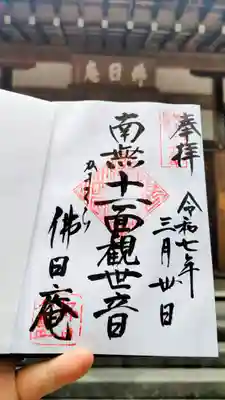 庵日佛
奉拝
令和七年
三月卅日
南無十一面觀世音
佛日庵